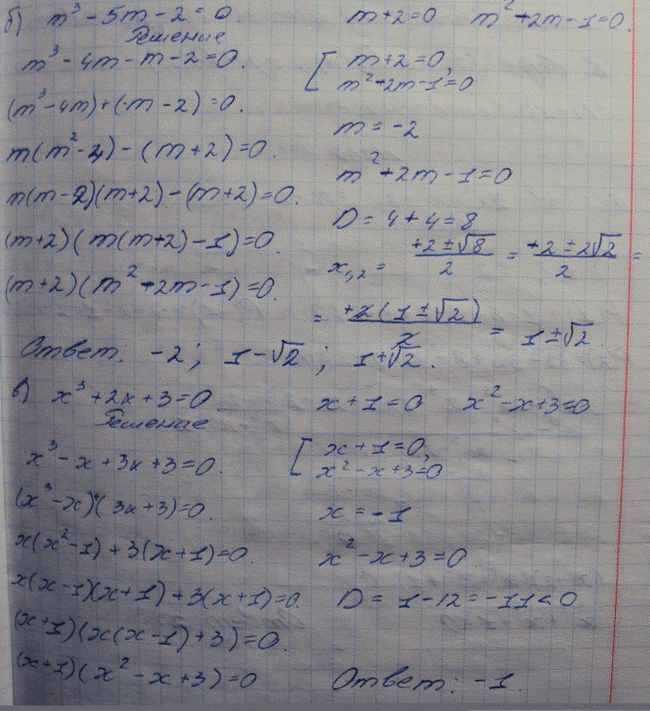 б) m³ - 5m - 2 = 0.
Решение
m³ - 4m - m - 2 = 0.
(m³ - 4m) + (-m - 2) = 0.
m(m² - 4) - (m + 2) = 0.
m(m - 2)(m + 2) - (m + 2) = 0.
(m + 2)(m(m + 2) - 1) = 0.
(m + 2)(m² + 2m - 1) = 0.
m + 2 = 0 m² + 2m - 1 = 0.
[ m + 2 = 0,
m² + 2m - 1 = 0
m = -2
m² + 2m - 1 = 0
D = 4 + 4 = 8
x₁,₂ = (+2 ± √8)/2 = (+2 ± 2√2)/2 =
= (+2(1 ± √2))/2 = 1 ± √2
Ответ. -2; 1 - √2; 1 + √2.
в) x³ + 2x + 3 = 0.
Решение
x³ - x + 3x + 3 = 0.
(x³ - x) + (3x + 3) = 0.
x(x² - 1) + 3(x + 1) = 0.
x(x - 1)(x + 1) + 3(x + 1) = 0.
(x + 1)(x(x - 1) + 3) = 0.
(x + 1)(x² - x + 3) = 0
x + 1 = 0 x² - x + 3 = 0
[ x + 1 = 0,
x² - x + 3 = 0
x = -1
x² - x + 3 = 0.
D = 1 - 12 = -11 < 0
Ответ: -1.